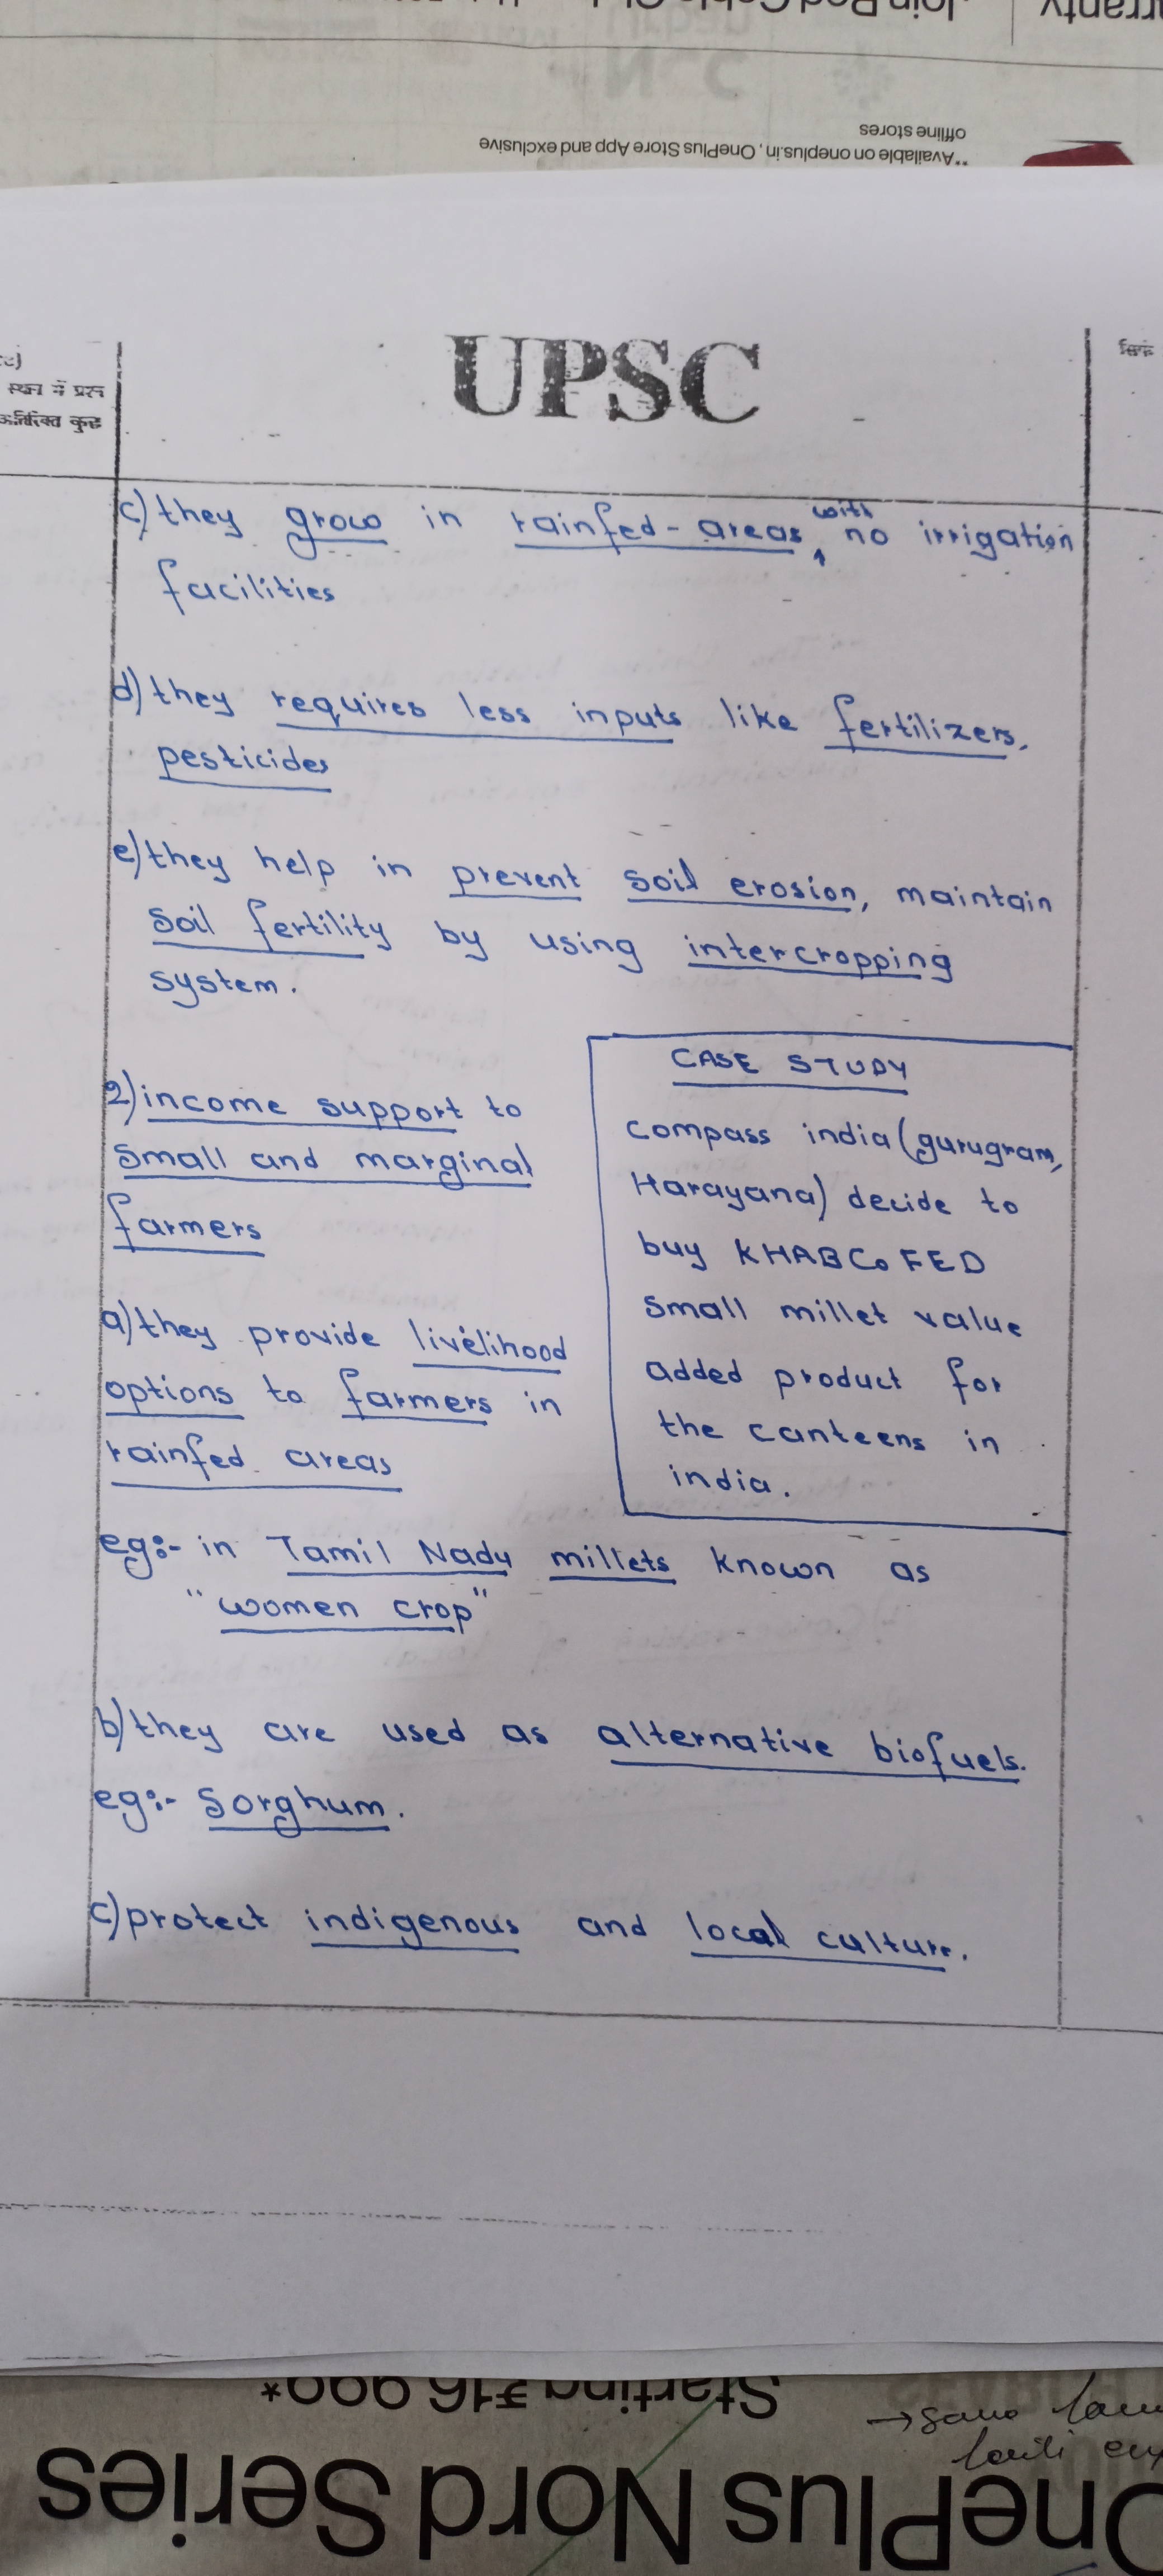 Join Red Cable Club
**Available on oneplus.in, OnePlus Store App and exclusive
offline stores
UPSC
स्थान में प्रश्न
अतिरिक्त कुछ
c) they grow in rainfed-areas, with no irrigation
facilities
d) they requires less inputs like fertilizers,
pesticides
e) they help in prevent soil erosion, maintain
soil fertility by using intercropping
system.
2) income support to
small and marginal
farmers
a) they provide livelihood
options to farmers in
rainfed areas
CASE STUDY
compass india (gurugram,
Harayana) decide to
buy KHABCoFED
small millet value
added product for
the canteens in
india.
eg:- in Tamil Nadu millets known as
"women crop"
b) they are used as alternative biofuels.
eg:- Sorghum.
c) protect indigenous and local culture.
Starting ₹16,999*
OnePlus Nord Series